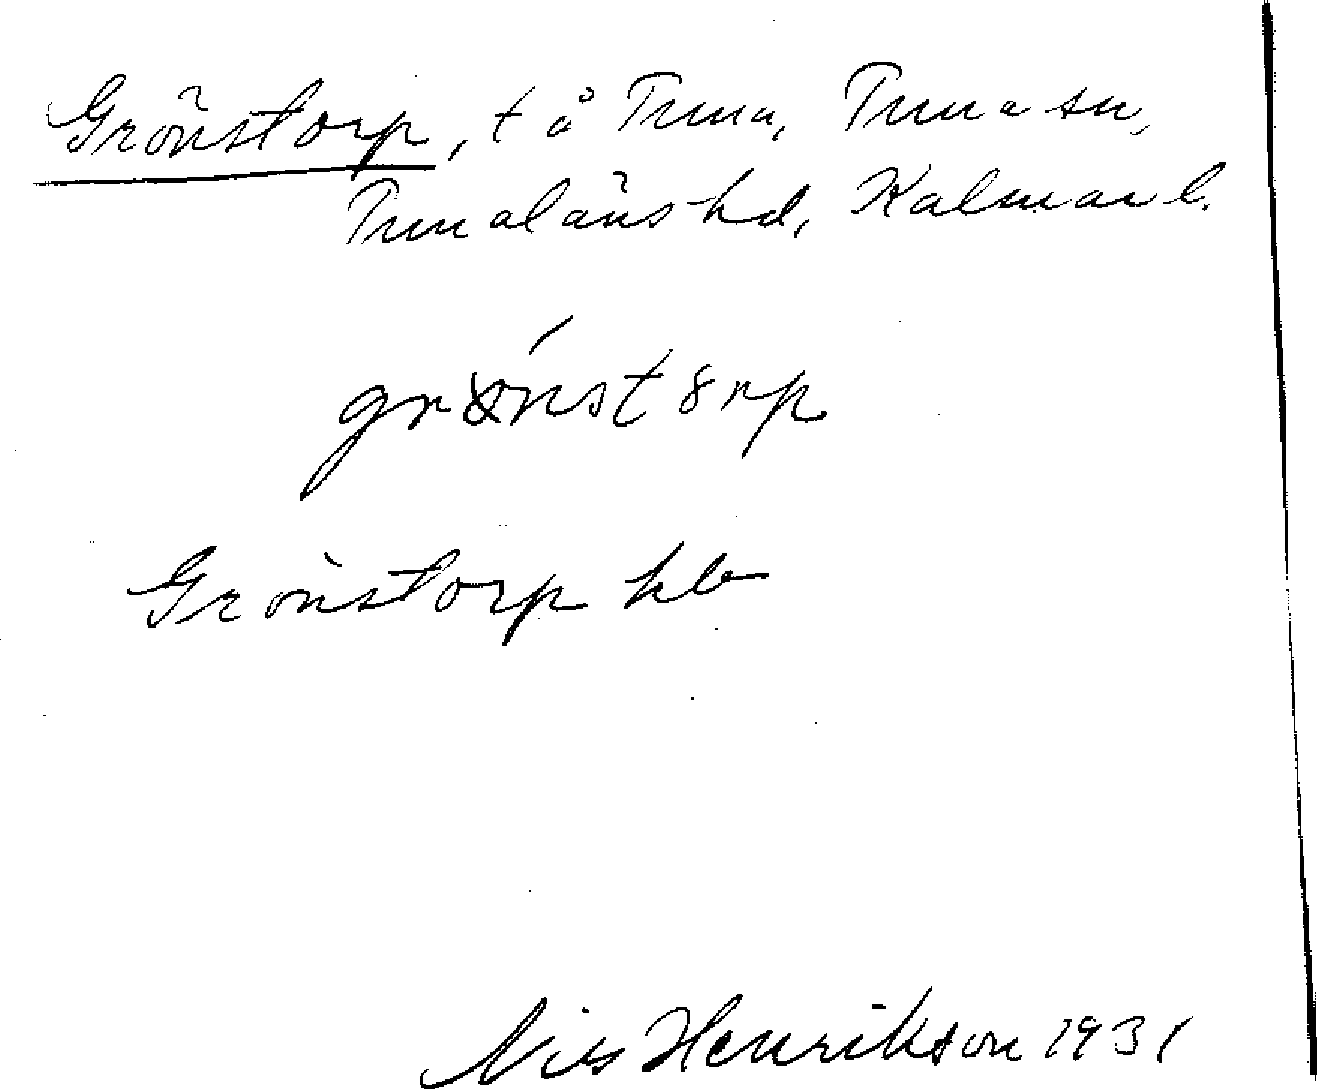 Grönstorp, t å Tuna, Tuna sn,
Tunaläns hd, Kalmar l.
Grönstorp hb
Nils Henrikson 1931